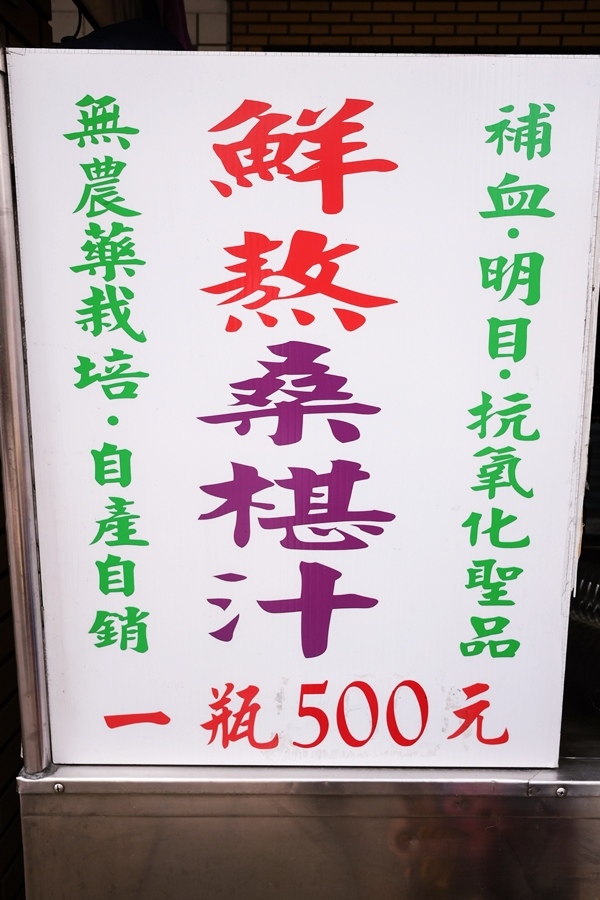 補血·明目·抗氧化聖品
鮮熬桑椹汁
無農藥栽培·自產自銷
一瓶500元